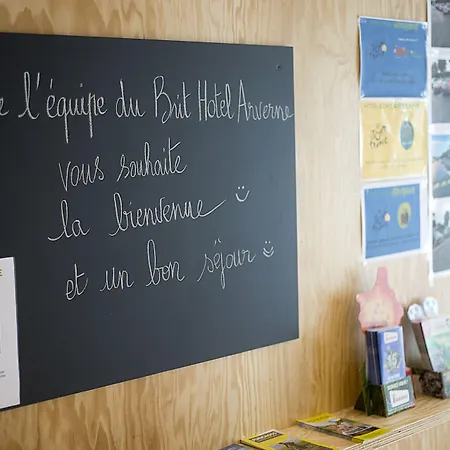 e l'équipe du Brit Hotel Arverne
vous souhaite
la bienvenue
et un bon séjour